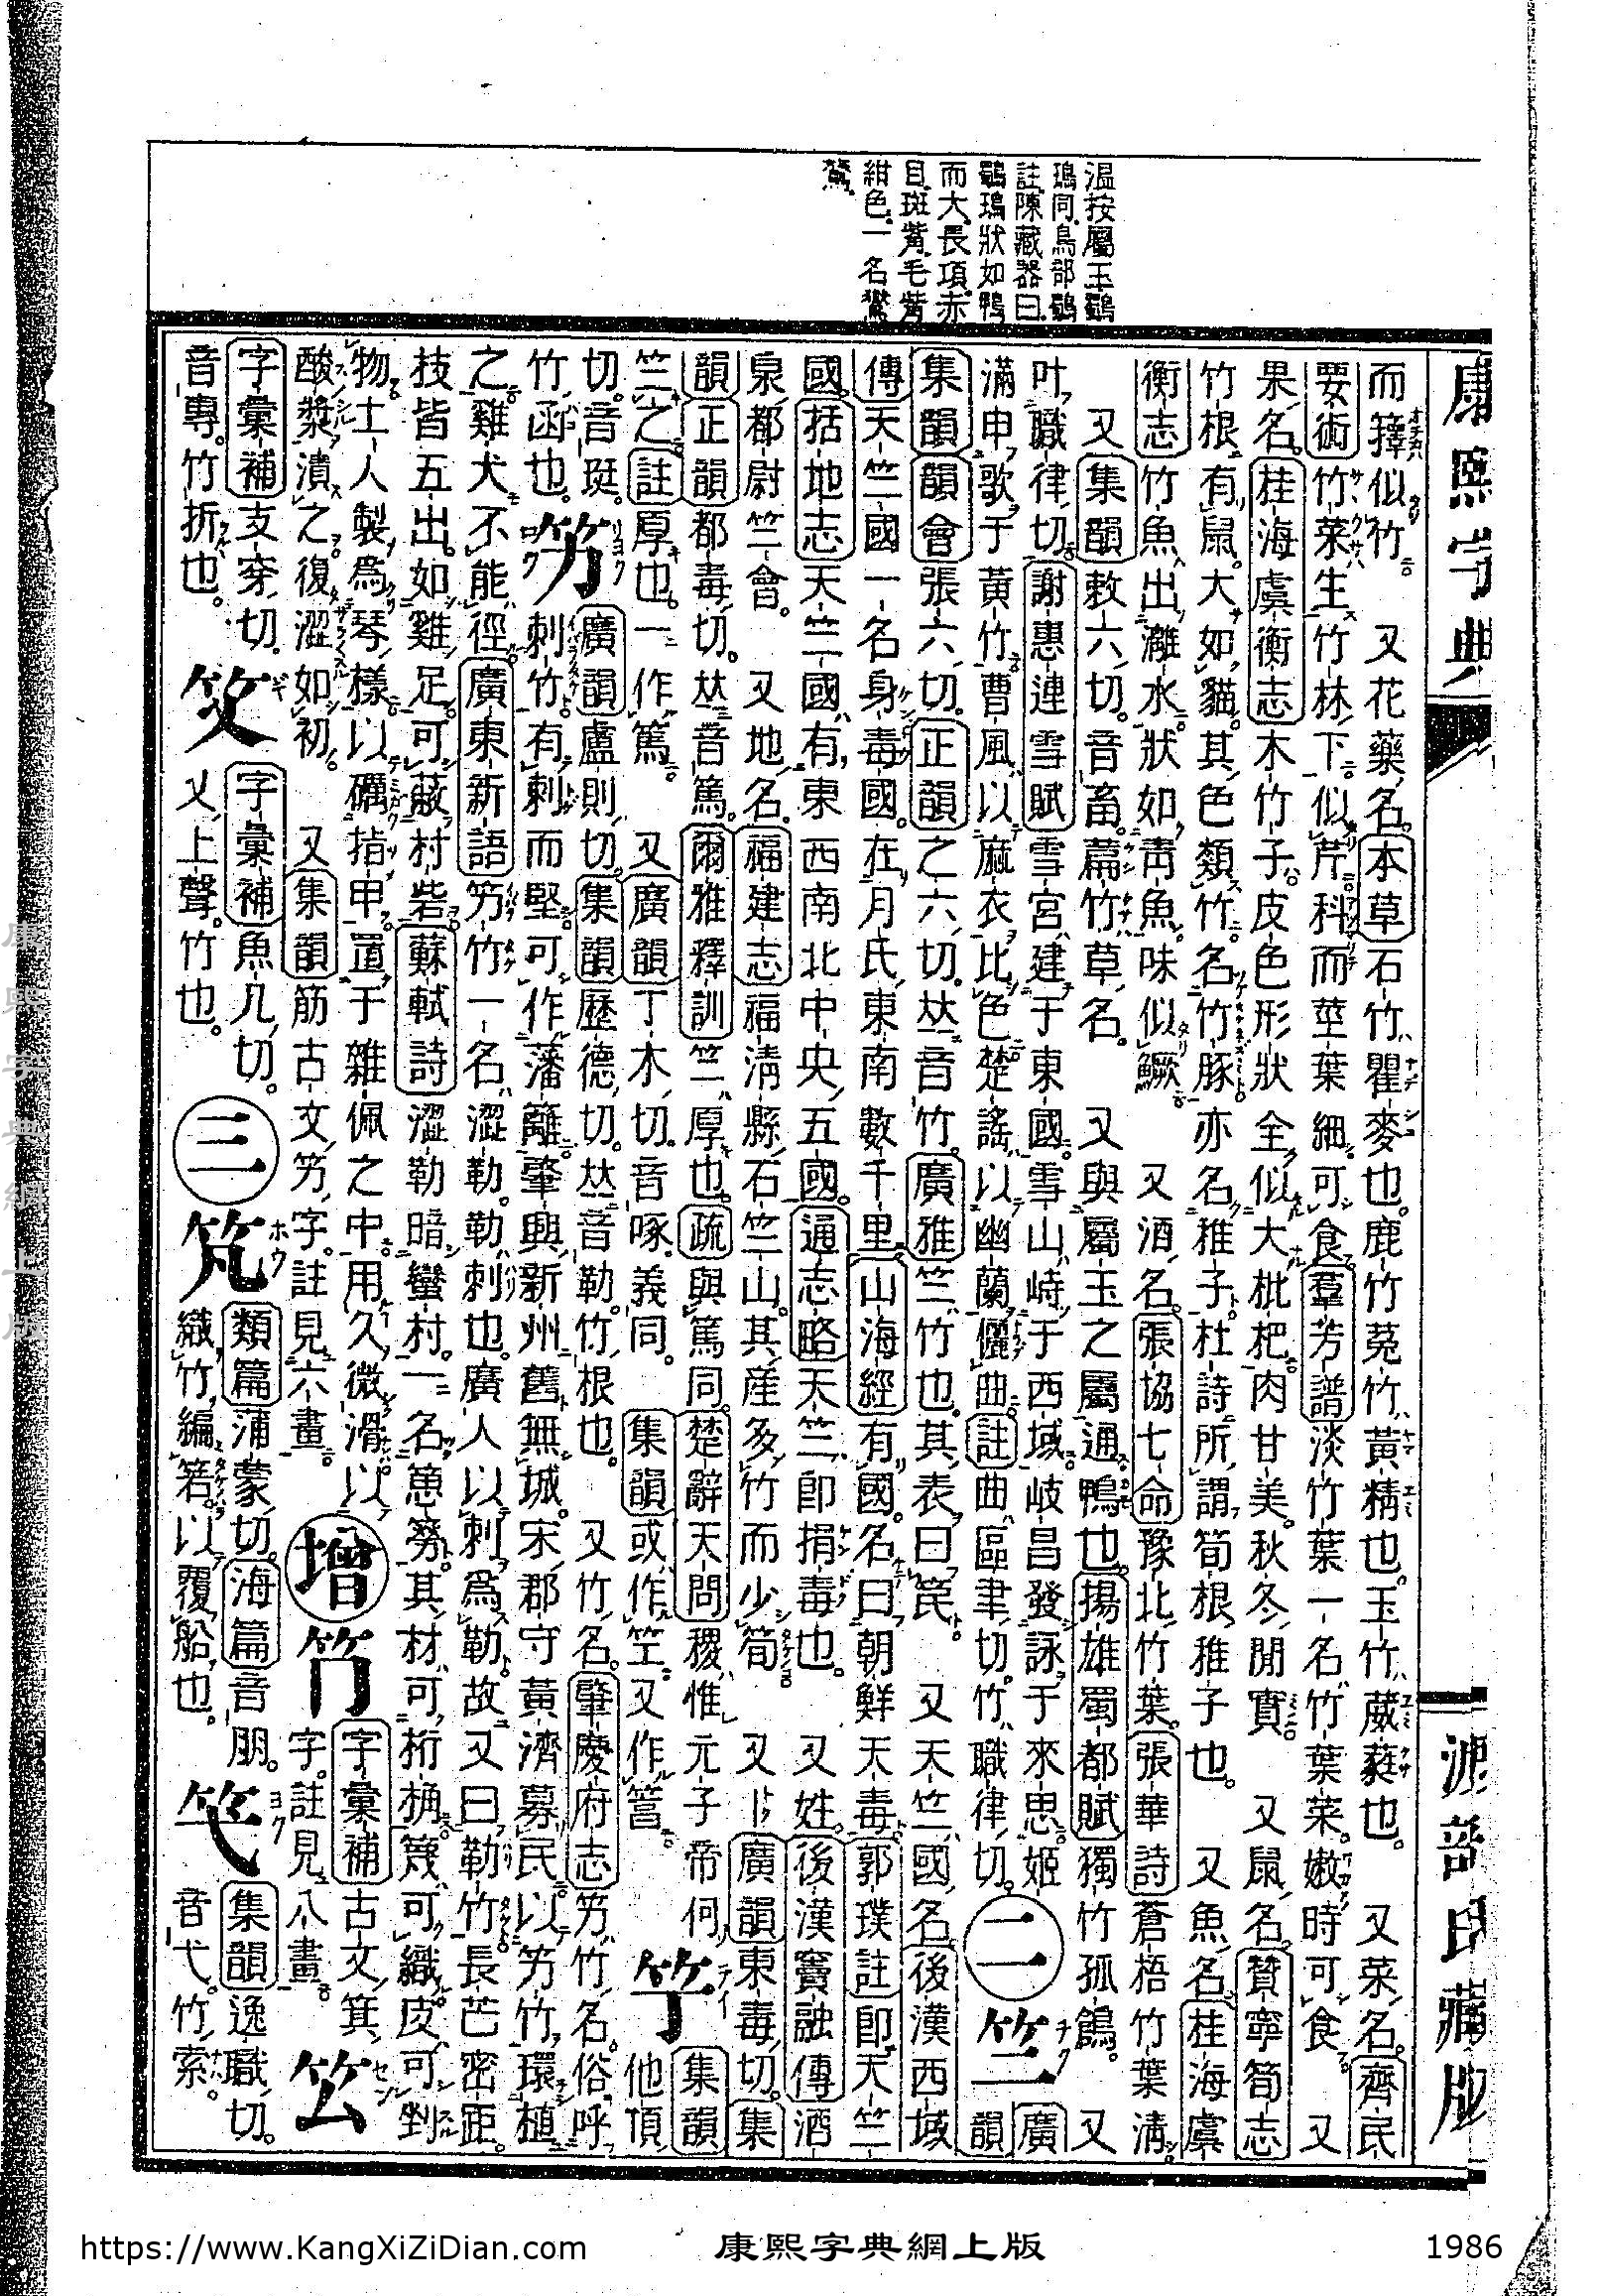 温按屬玉鸀
鳿同鳥部鸀
註陳藏器曰
鸀鳿狀如鴨
而大長項赤
目斑觜毛觜
紺色一名鸑
鷟
康熙字典 源部氏藏版
而籜似竹 又花藥名本草石竹瞿麥也鹿竹菟竹黃精也玉竹葳蕤也 又菜名齊民
要術竹菜生竹林下似芹科而莖葉細可食羣芳譜淡竹葉一名竹葉菜嫩時可食 又
果名桂海虞衡志木竹子皮色形狀全似大枇杷肉甘美秋冬閒實 又鼠名贊寧筍志
竹根有鼠大如貓其色類竹名竹豚亦名稚子杜詩所謂筍根稚子也 又魚名桂海虞
衡志竹魚出灕水狀如靑魚味似鱖 又酒名張協七命豫北竹葉張華詩蒼梧竹葉淸
又集韻敕六切音畜萹竹草名 又與屬玉之屬通鴨也揚雄蜀都賦獨竹孤鶬 又
叶職律切謝惠連雪賦雪宮建于東國雪山峙于西域岐昌發詠于來思姬
滿申歌于黃竹曹風以麻衣比色楚謠以幽蘭儷曲註曲區聿切竹職律切
二 竺 廣韻
集韻韻會張六切正韻之六切𠀤音竹廣雅竺竹也其表曰笢 又天竺國名後漢西域
傳天竺國一名身毒國在月氏東南數千里山海經有國名曰朝鮮天毒郭璞註卽天竺
國括地志天竺國有東西南北中央五國通志略天竺卽捐毒也 又姓後漢竇融傳酒
泉都尉竺會 又地名福建志福淸縣石竺山其產多竹而少筍 又廣韻東毒切集
韻正韻都毒切𠀤音篤爾雅釋訓竺厚也疏與篤同楚辭天問稷惟元子帝何
竺之註厚也一作篤 又廣韻丁木切音啄義同 集韻或作笁又作䈞
䇓 集韻他頂
切音珽竹函也
竻 廣韻盧則切集韻歷德切𠀤音勒竹根也 又竹名肇慶府志竻竹名俗呼
刺竹有刺而堅可作藩籬肇興新州舊無城宋郡守黃濟募民以竻竹環植
之雞犬不能徑廣東新語竻竹一名澀勒勒刺也廣人以刺爲勒故又曰勒竹長芒密距
技皆五出如雞足可蔽村砦蘇軾詩澀勒暗蠻村一名簩其材可桁桷篾可織皮可剉
物土人製爲琴樣以礪指甲置于雜佩之中用久微滑以
酸漿漬之復澀如初 又集韻筋古文竻字註見六畫
增 字彙補古文箕字註見八畫
字彙補支穿切
音專竹折也
字彙補魚几切
又上聲竹也
三 類篇蒲蒙切海篇音朋
織竹編箬以覆船也
集韻逸職切
音弋竹索
https://www.KangXiZiDian.com
康熙字典網上版
1986